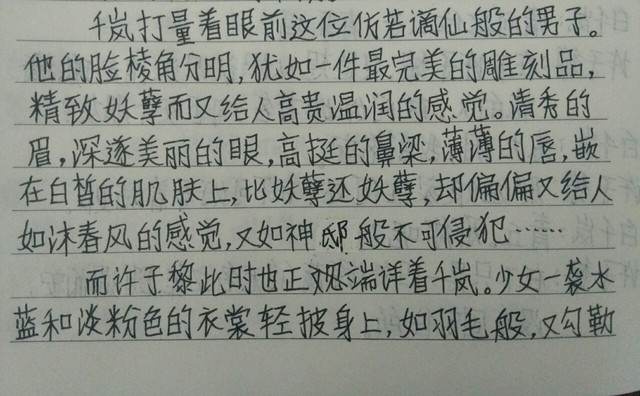 千岚打量着眼前这位仿若谪仙般的男子。
他的脸棱角分明,犹如一件最完美的雕刻品,
精致妖孽而又给人高贵温润的感觉。清秀的
眉,深邃美丽的眼,高挺的鼻梁,薄薄的唇,嵌
在白皙的肌肤上,比妖孽还妖孽,却偏偏又给人
如沐春风的感觉,又如神邸般不可侵犯……
而许子黎此时也正观端详着千岚。少女一袭水
蓝和淡粉色的衣裳轻披身上,如羽毛般,又勾勒